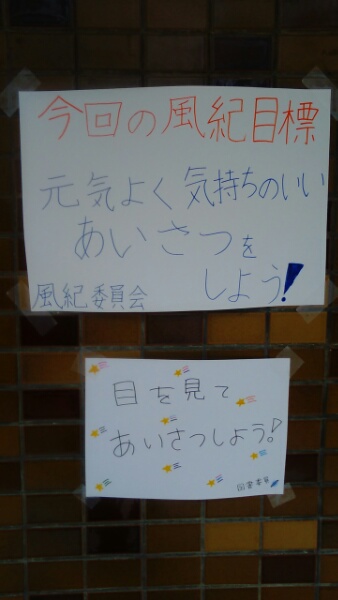 今回の風紀目標
元気よく気持ちのいい
あいさつを
しよう!
風紀委員会
目を見て
あいさつしよう!